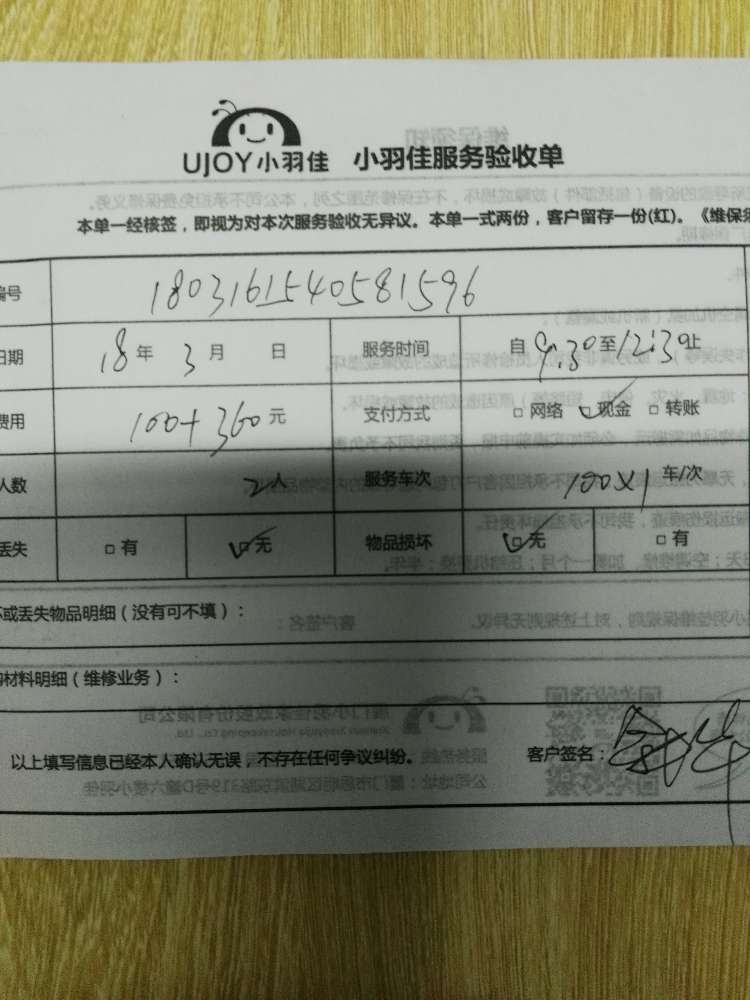 UJOY小羽佳 小羽佳服务验收单
本单一经核签，即视为对本次服务验收无异议。本单一式两份，客户留存一份(红)。《维保须
编号 1803161540581596
日期 18年 3月 日 服务时间 自9:30至12:30止
费用 100+360元 支付方式 □网络 ☑现金 □转账
人数 2人 服务车次 100×1车/次
丢失 □有 ☑无 物品损坏 ☑无 □有
坏或丢失物品明细（没有可不填）：
材料明细（维修业务）：
以上填写信息已经本人确认无误，不存在任何争议纠纷。 客户签名：